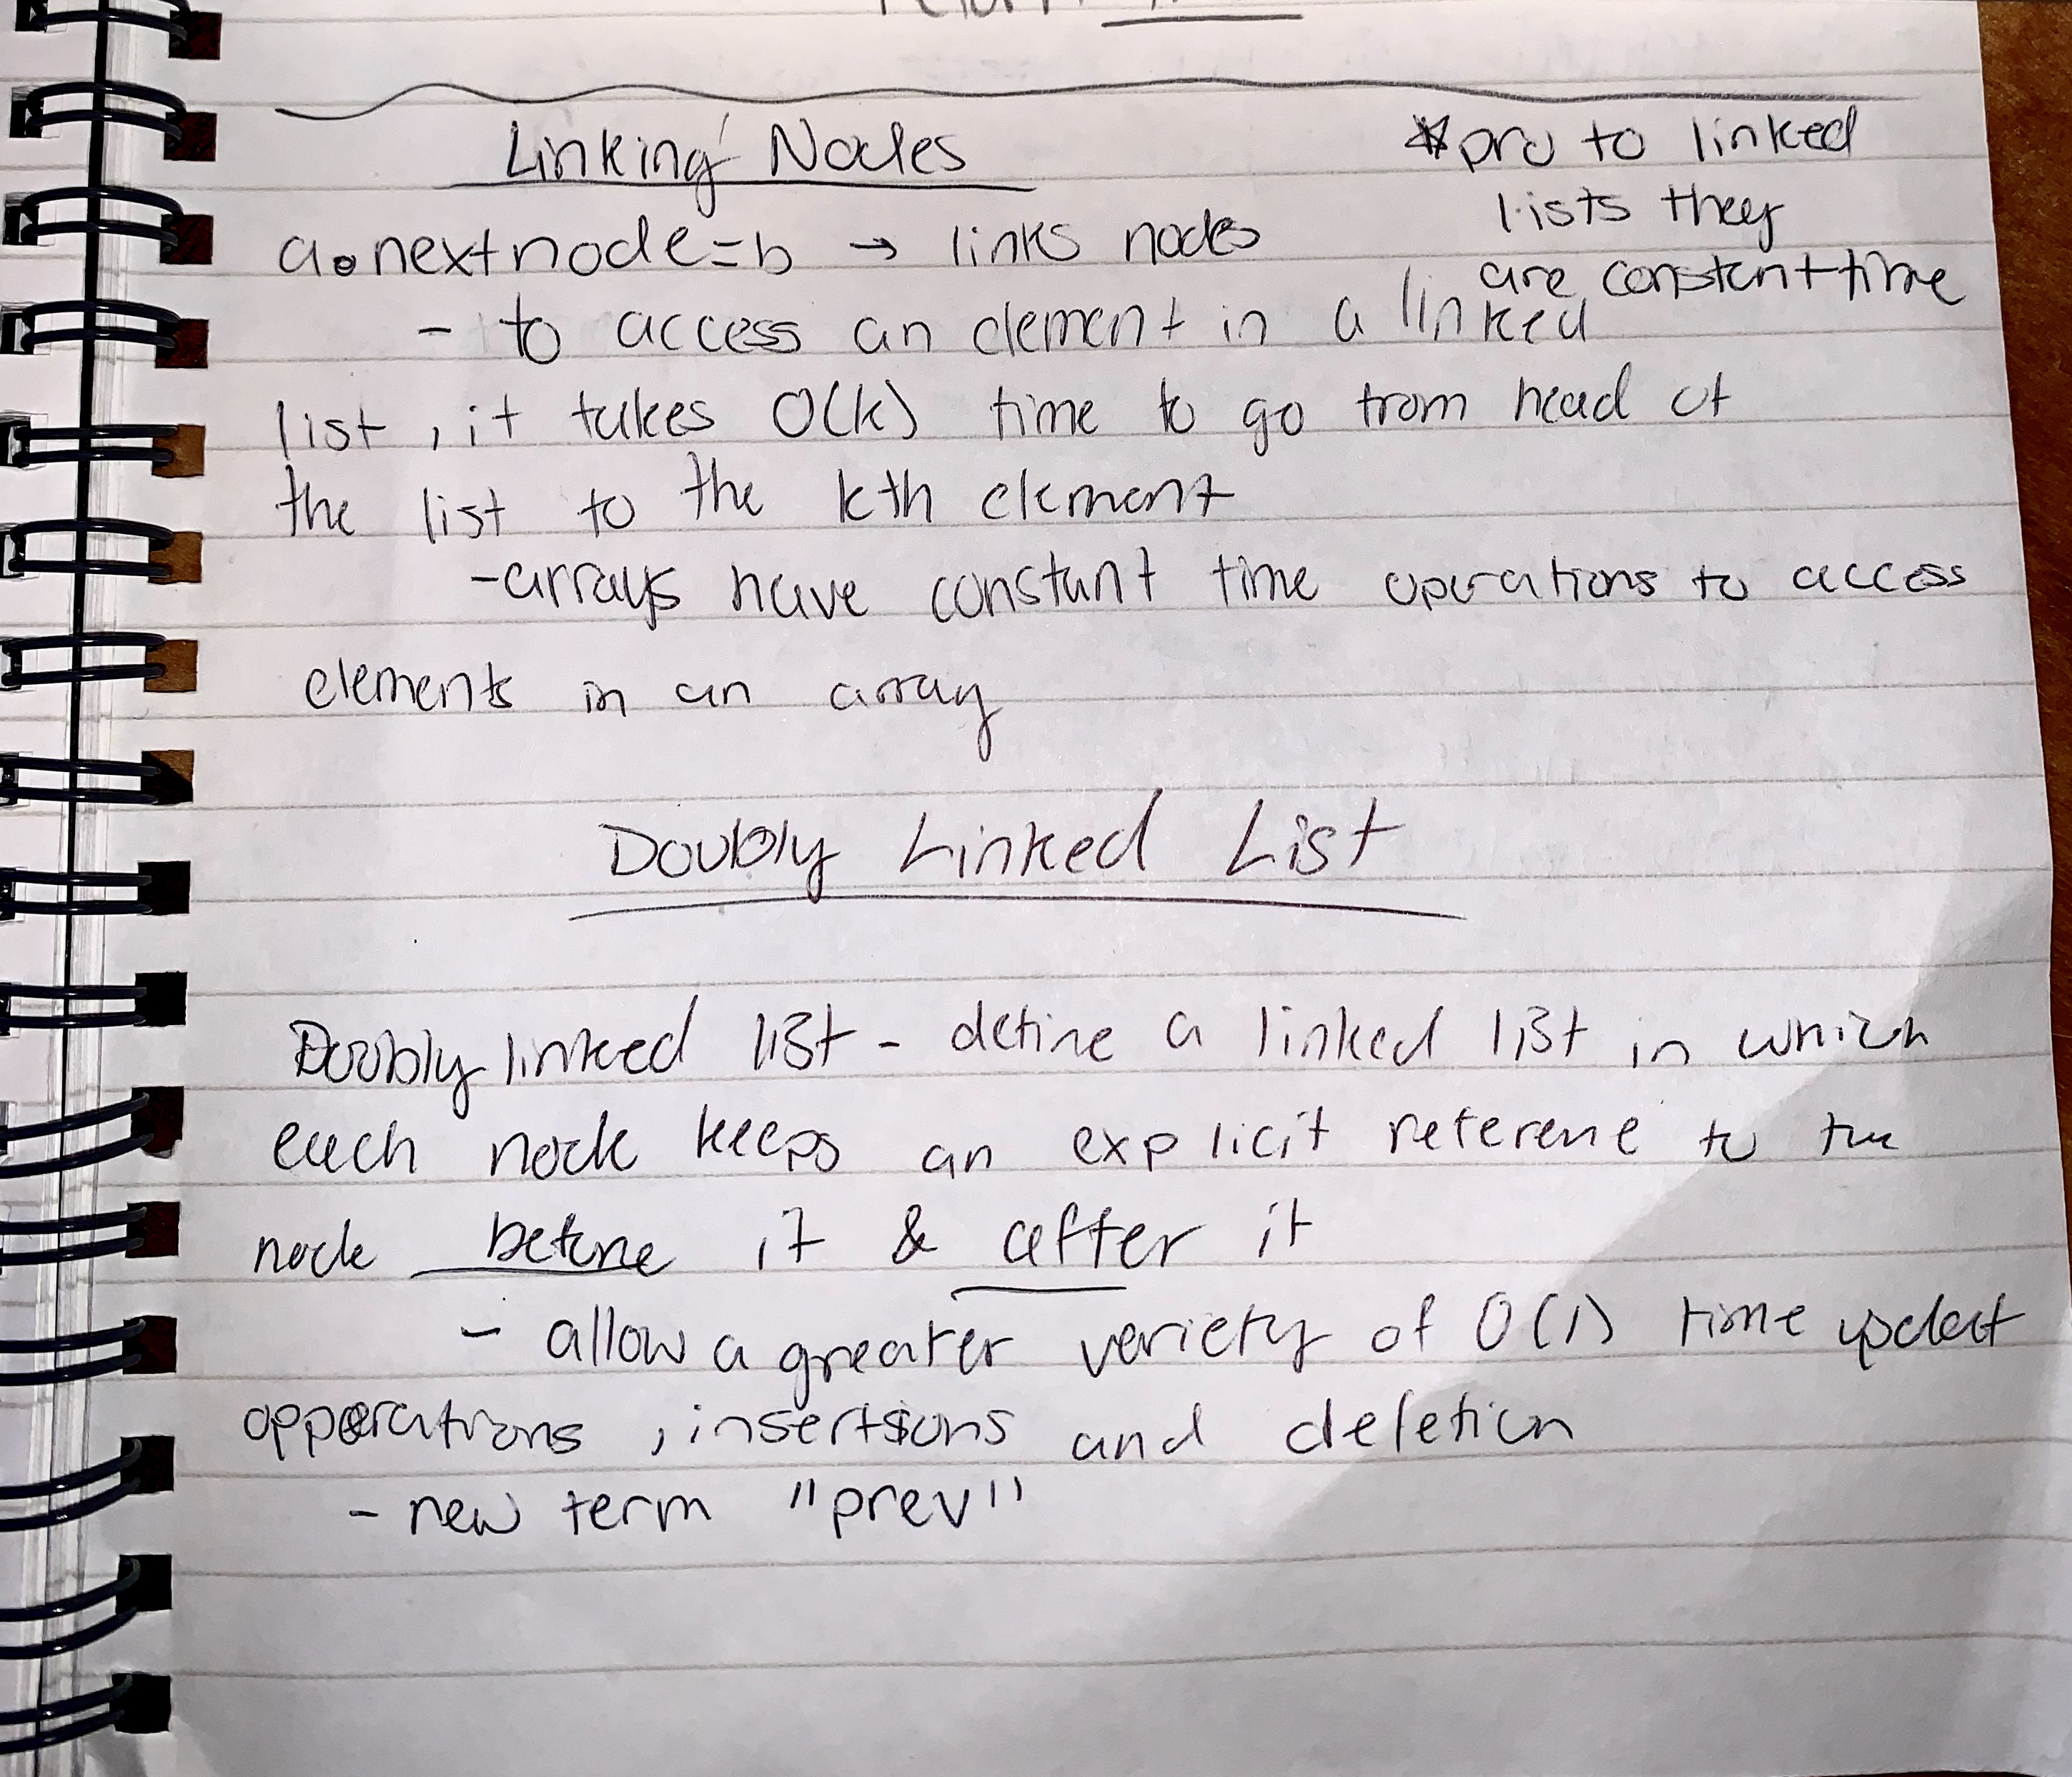 Linking Nodes
*pro to linked
lists they
are constant time
a.nextnode=b → links nodes
- to access an element in a linked
list, it takes O(k) time to go from head of
the list to the kth element
-arrays have constant time operations to access
elements in an array
Doubly Linked List
Doubly linked list - define a linked list in which
each node keeps an explicit reference to the
node before it & after it
- allow a greater variety of O(1) time updat
opperations, insertions and deletion
- new term "prev"